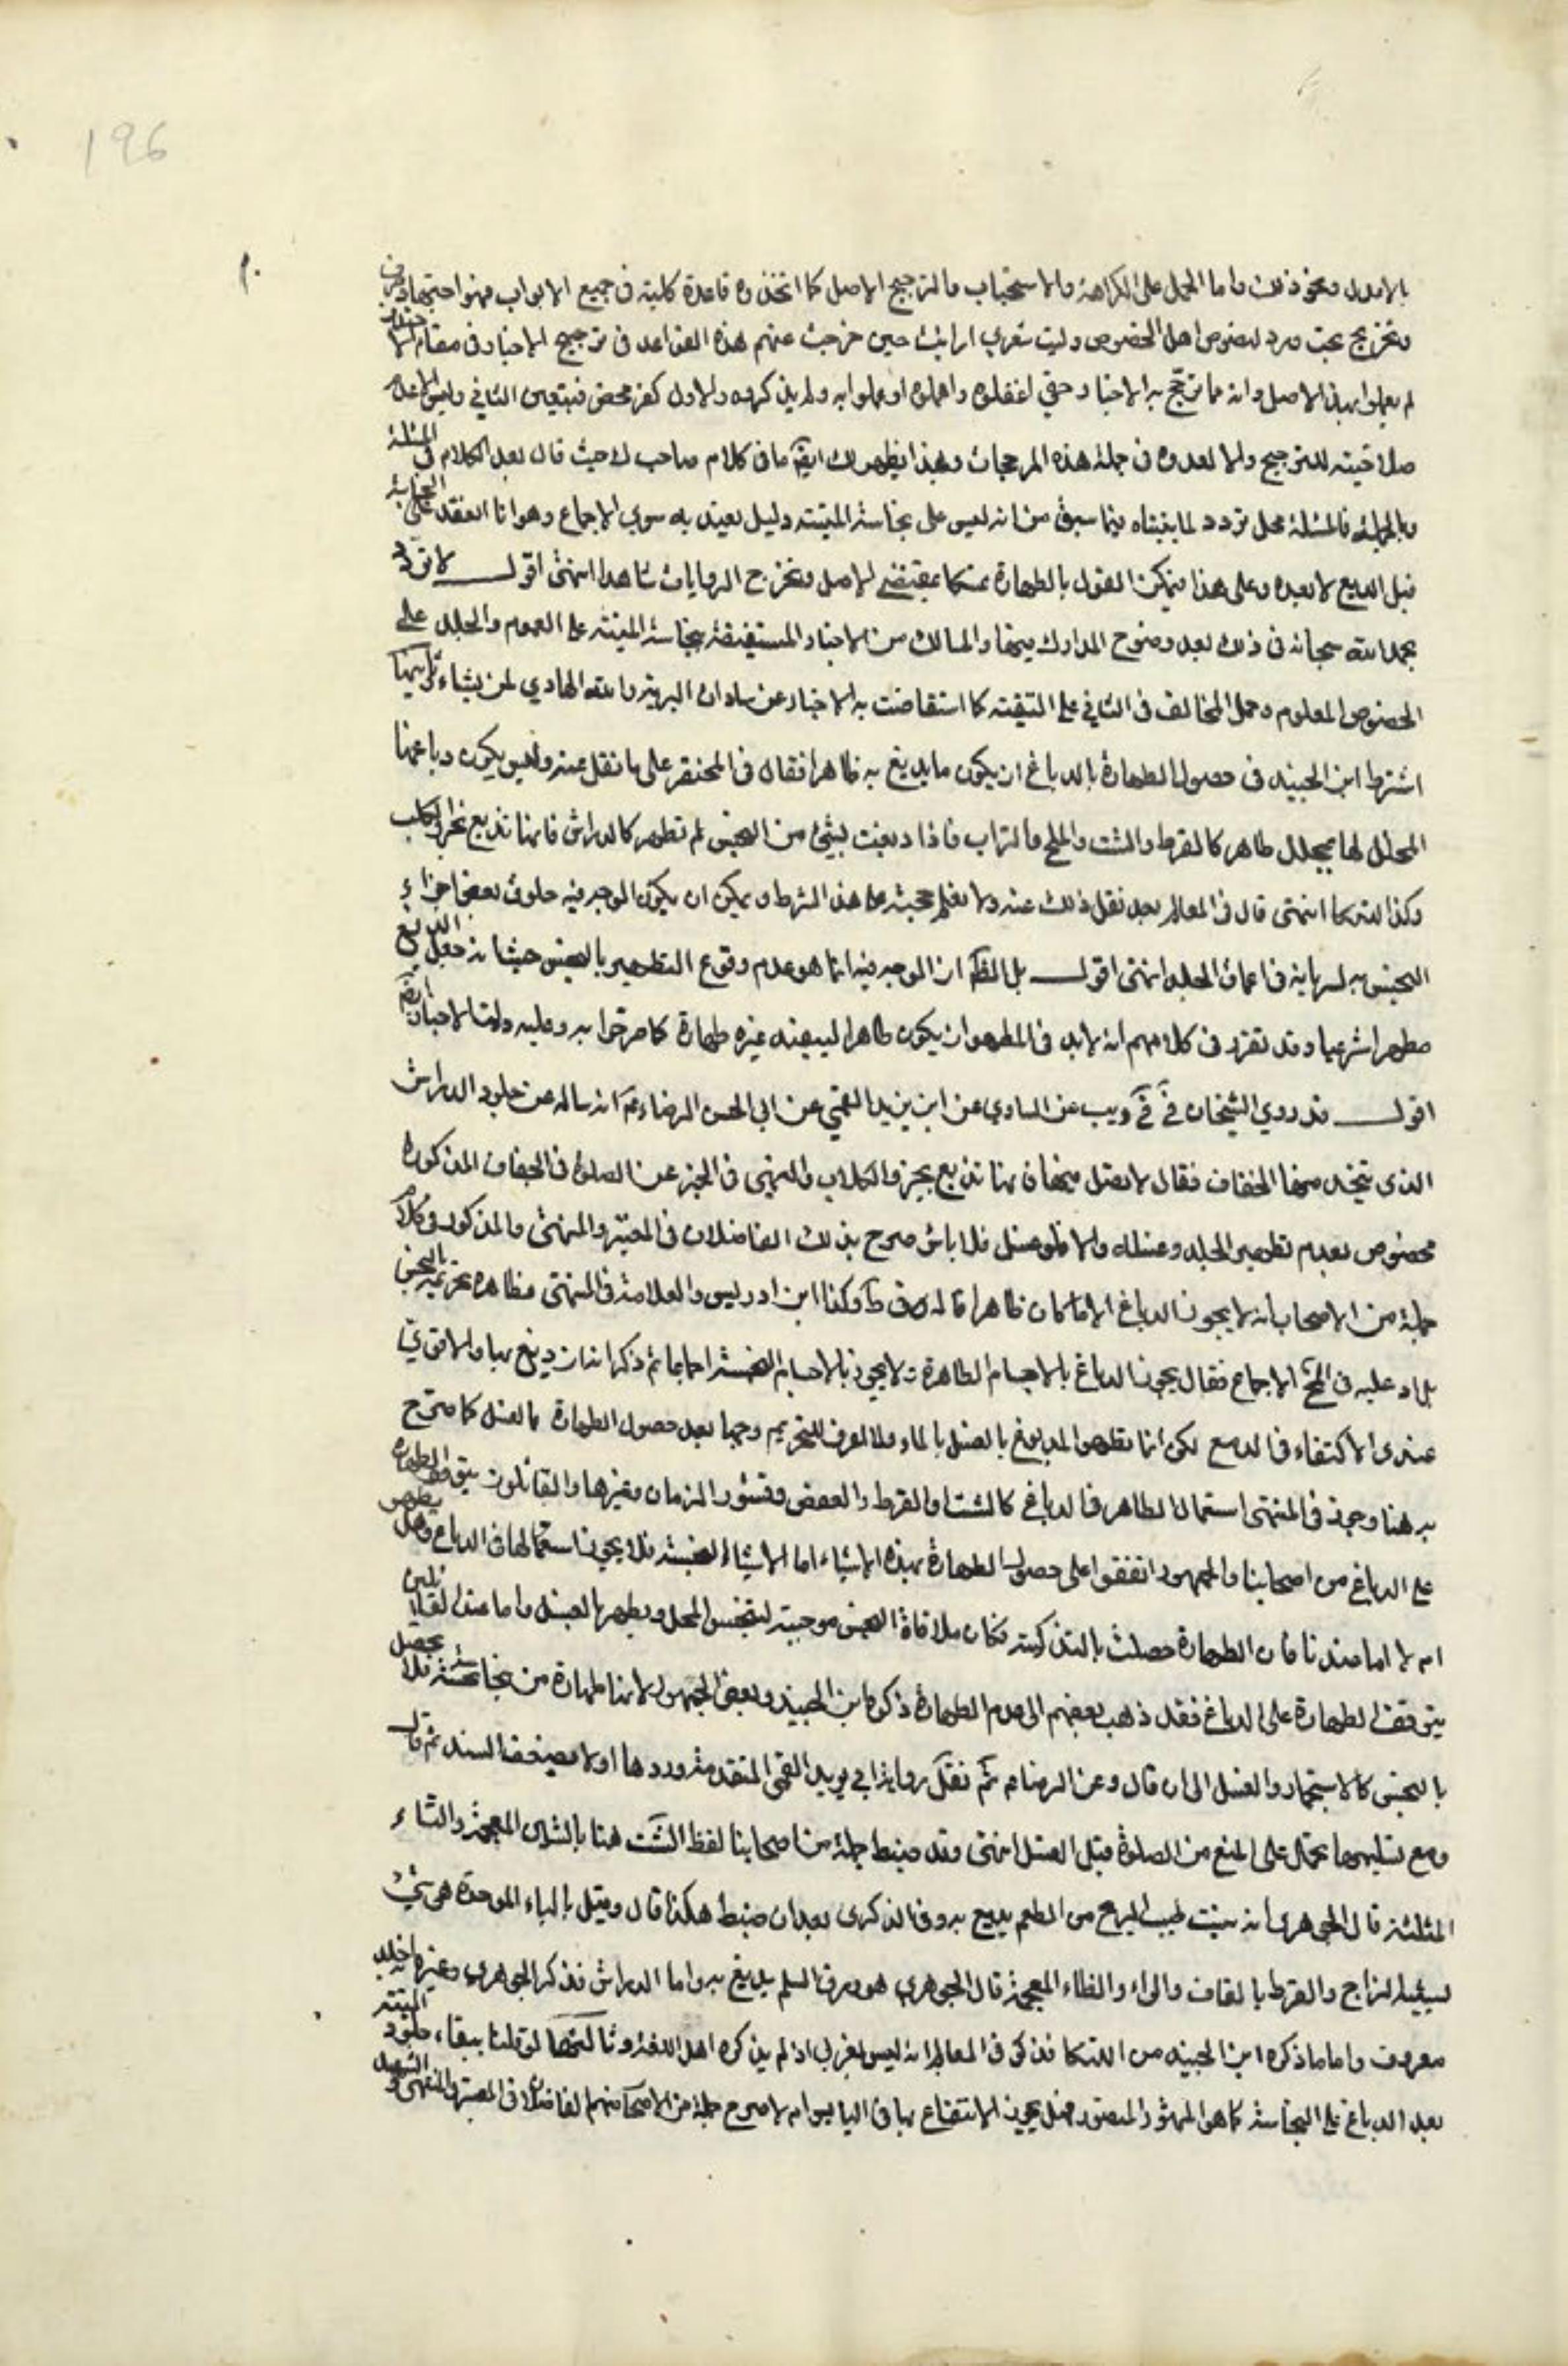 196
بالاول ونحو ذلك واما الحمل على الكراهة والاستحباب والترجيح الاصل كما اتخذوه قاعدة كلية في جميع الابواب فهو اجتهاد صرف
وتخريج بحت ورد لنصوص اهل الخصوص وليت شعري ارايت حين خرجت عنهم هذه القواعد في ترجيح الاخبار في مقام الاختلاف
لم يعلموا بهذا الاصل وانه مما ترجح به الاخبار حتى اغفلوه واهملوه او علموا به ولم يذكروه والاول كفر محض فيتعين الثاني وليس الا لعدم
صلاحيته للترجيح والا لعدوه في جملة هذه المرجحات وبهذا يظهر لك ايضا ما في كلام صاحب لك حيث قال بعد الكلام في المسئلة
وبالجملة فالمسئلة محل تردد لما بيناه فيما سبق من انه ليس على نجاسة الميتة دليل يعتد به سوى الاجماع وهو انما انعقد على النجاسة
قبل الدبغ لا بعده وعلى هذا فيمكن القول بالطهارة تمسكا بمقتضى الاصل وتخرج الروايات شاهدا انتهى اقول لا تردد
بحمد الله سبحانه في ذلك بعد وضوح المدارك فيها والمسالك من الاخبار المستفيضة بنجاسة الميتة على العموم والجلد على
الخصوص المعلوم وحمل المخالف في الثاني على التقية كما استفاضت به الاخبار عن سادات البرية والله الهادي لمن يشاء ثانيها
اشترط ابن الجنيد في حصول الطهارة بالدباغ ان يكون ما يدبغ به طاهرا فقال في المختصر على ما نقل عنه وليس يكون دباغها
المحلل لها محلل طاهر كالقرظ والشث والملح والتراب فاذا دبغت بشيء من النجس لم تطهر كالدارش فانها تدبغ بخرء الكلب
وكذا اللنكا انتهى قال في المعالم بعد نقل ذلك عنه ولا نعلم حجته على هذا الشرط ويمكن ان يكون الوجه فيه حلول بعض اجزاء
النجس به لسرايته في اعماق الجلد انتهى اقول بل الظ ان الوجه فيه انما هو عدم وقوع التطهير بالنجس حيث انه جعل الدبغ
مطهرا شرعيا وقد تقرر في كلامهم انه لابد في المطهر ان يكون طاهرا ليفيد غيره طهارة كما صرحوا به وعليه دلت الاخبار ايض
اقول قد روى الشيخان في في ويب عن السياري عن ابن يزيد القمي عن ابي الحسن الرضا ع انه ساله عن جلود الدارش
الذي يتخذ منها الخفاف فقال لا تصل فيها فانها تدبغ بخرء الكلاب والنهي في الخبر عن الصلوة في الخفاف المذكورة
مخصوص بعدم تطهير الجلد وغسله والا فلو غسل فلا باس صرح بذلك الفاضلان في المعتبر والمنتهى والمذكور في كلام
جملة من الاصحاب انه لا يجوز الدباغ الا بما كان طاهرا قاله في ط وكذا ابن ادريس والعلامة في المنتهى وظاهره تحريمه بالنجس
بل ادعى عليه في المخ الاجماع فقال يجوز الدباغ بالاجسام الطاهرة ولا يجوز بالاجسام النجسة اجماعا ثم ذكر انه ان دبغ بها والاقوى
عندي الاكتفاء في الدبغ لكن انما يطهر المدبوغ بالغسل بالماء ولا اعرف للتحريم وجها بعد حصول الطهارة بالغسل كما صرح
به هنا وجوز في المنتهى استعمال الطاهر في الدباغ كالشث والقرظ والعفص وقشور الرمان وغيرها والقائلون بتوقف الطهارة
على الدباغ من اصحابنا والجمهور اتفقوا على حصول الطهارة بهذه الاشياء اما الاشياء النجسة فلا يجوز استعمالها في الدباغ وهل يطهر
ام لا اما عندنا فان الطهارة حصلت بالتذكية فكان ملاقاة النجس موجبة لتنجس المحل ويطهر بالغسل واما عند القائلين
بتوقف الطهارة على الدباغ فقد ذهب بعضهم الى عدم الطهارة ذكره ابن الجنيد وبعض الجمهور لانها طهارة من نجاسة فلا يحصل
بالنجس كالاستجمار والغسل الى ان قال وعن الرضا ع ثم نقل رواية ابي يزيد القمي المتقدمة وردها اولا بضعف السند ثم قال
ومع تسليمها تحمل على المنع من الصلوة قبل الغسل انتهى وقد ضبط جملة من اصحابنا لفظ الشث هنا بالشين المعجمة والثاء
المثلثة قال الجوهري انه نبت طيب الريح مر الطعم يدبغ به وفي الذكرى بعد ان ضبط هكذا قال وقيل بالباء الموحدة هي شيء
يشبه الزاج والقرظ بالقاف والراء والظاء المعجمة قال الجوهري هو ورق السلم يدبغ به واما الدارش فذكر الجوهري وغيره انه جلد
معروف واما ما ذكره ابن الجنيد من اللنكا فذكر في المعالم انه ليس بعربي اذ لم يذكره اهل اللغة وثالثها لو قلنا ببقاء جلود الميتة
بعد الدباغ على النجاسة كما هو المشهور المنصور فهل يجوز الانتفاع بها في اليابس ام لا صرح جملة من الاصحاب منهم الفاضلان في المعتبر والمنتهى والشهيد